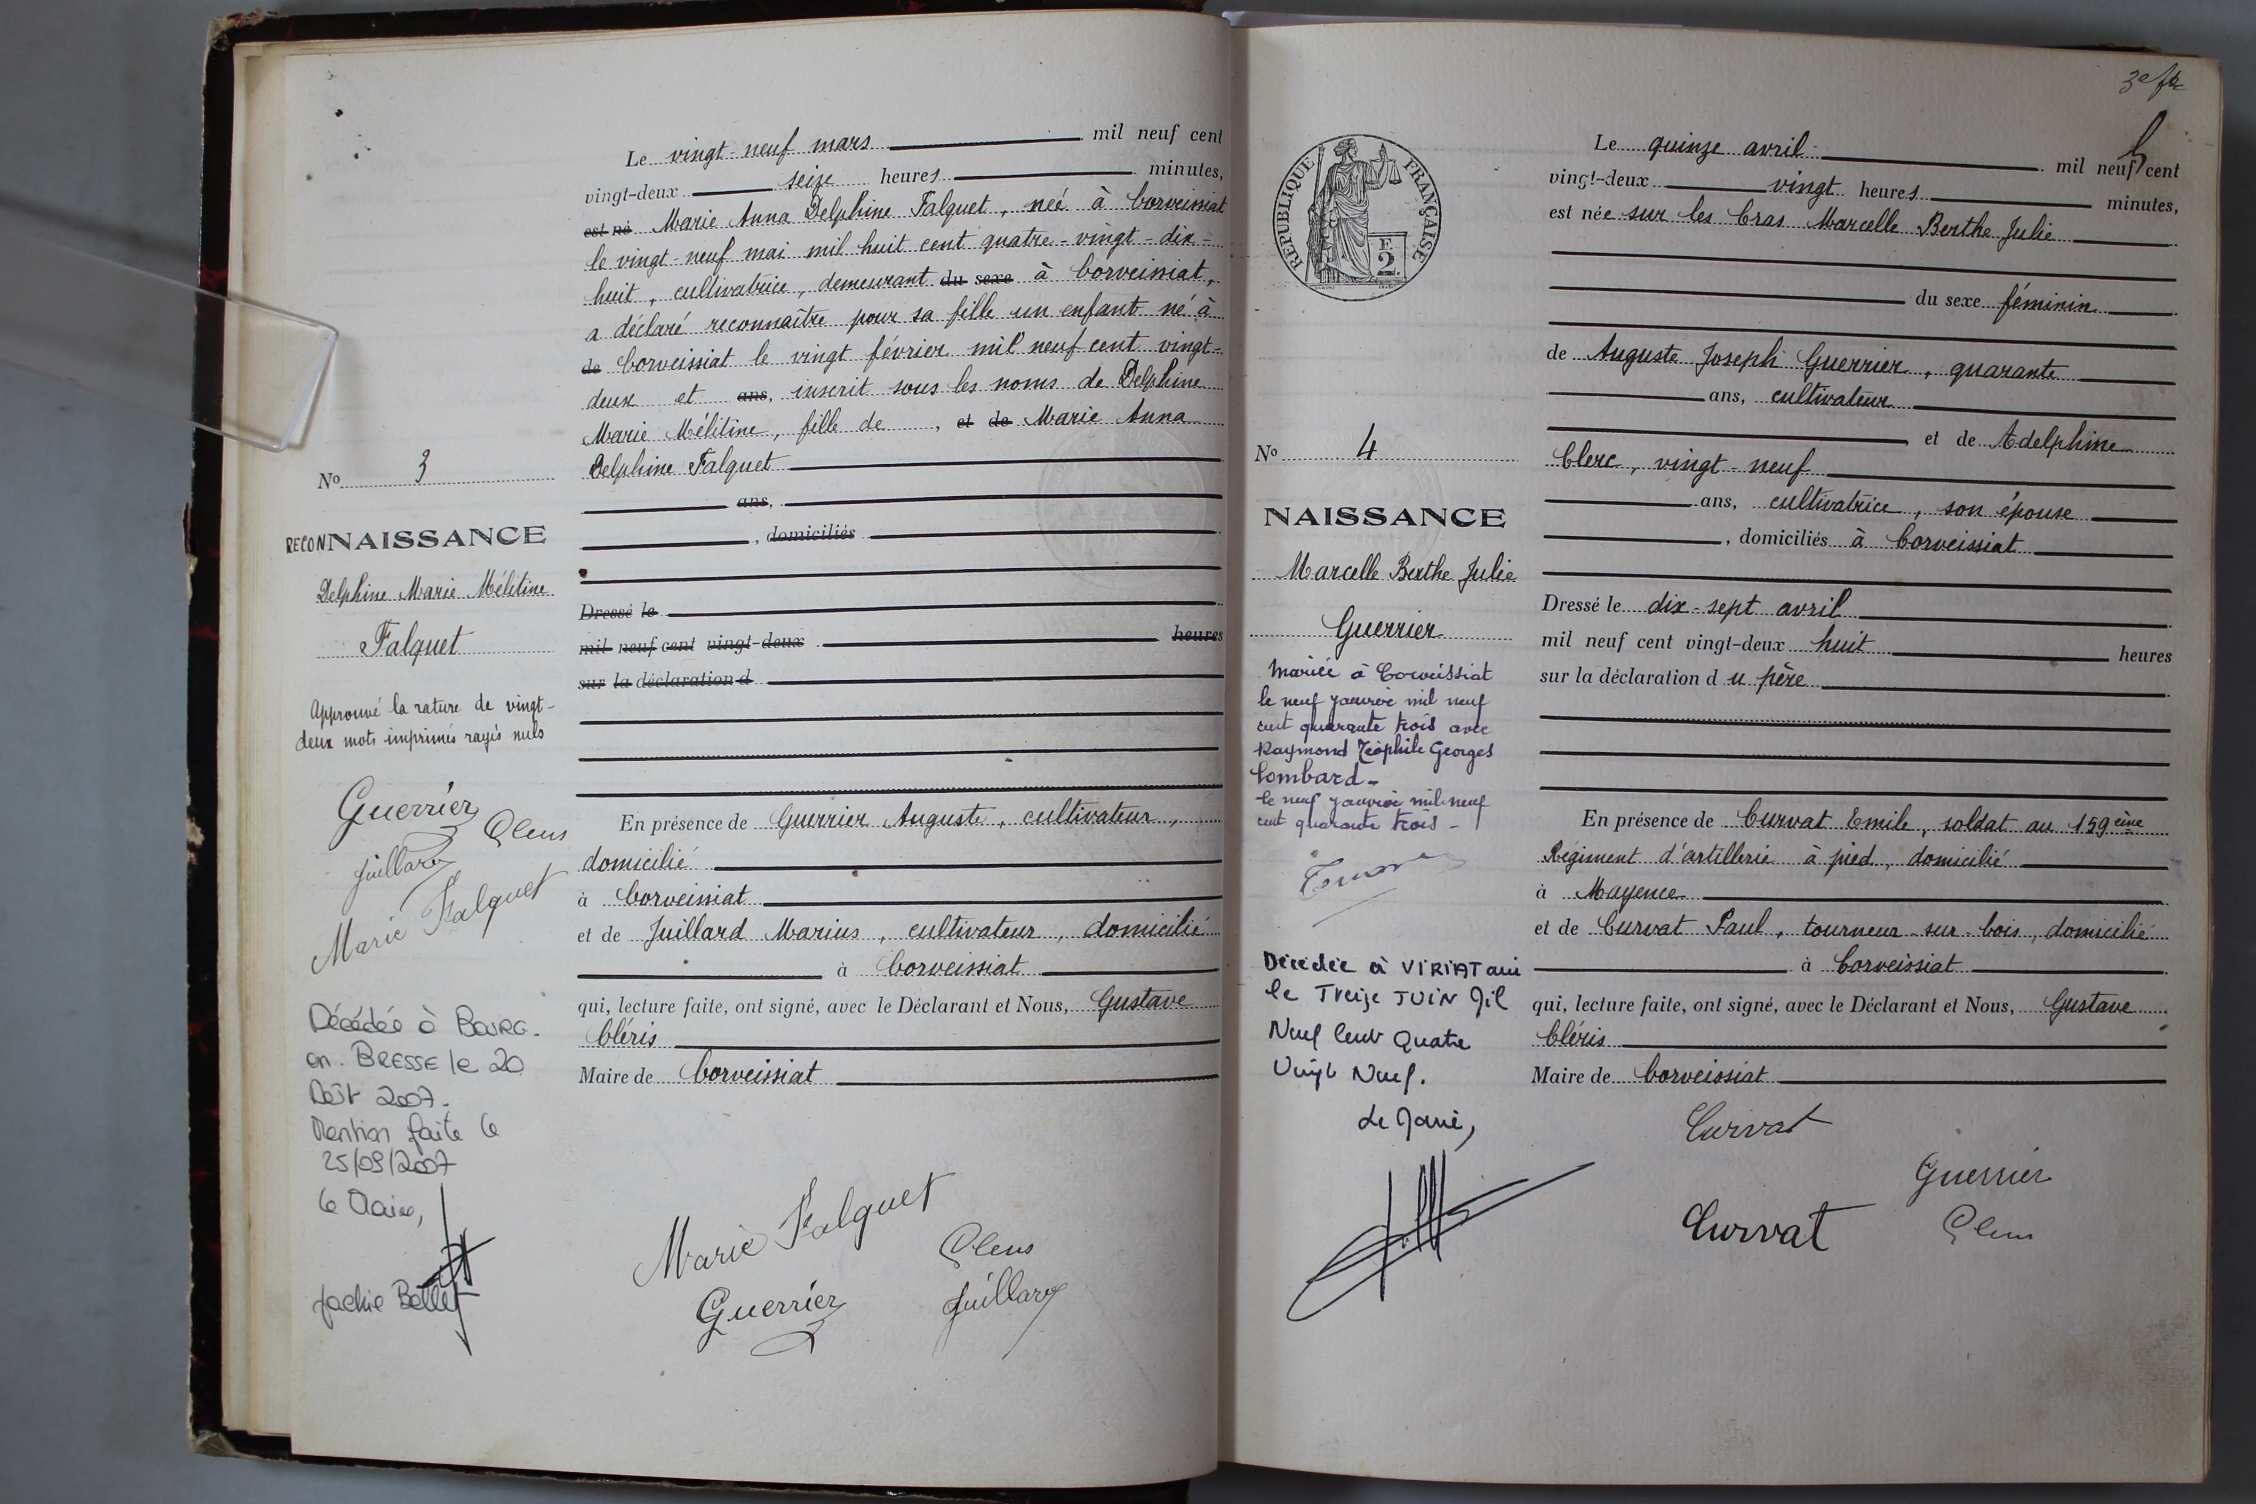 Le vingt-neuf mars mil neuf cent
vingt-deux seize heures minutes,
est né Marie Anna Delphine Falquet, neé à Corveissiat
le vingt-neuf mai mil huit cent quatre-vingt-dix-
huit, cultivatrice, demeurant du sexe à Corveissiat,
a déclaré reconnaître pour sa fille un enfant né à
de Corveissiat le vingt février mil neuf cent vingt-
deux et ans, inscrit sous les noms de Delphine
Marie Mélitine, fille de , et de Marie Anna
Delphine Falquet
ans,
, domiciliés
Dressé le
mil neuf cent vingt-deux heures
sur la déclaration d
En présence de Guerrier Auguste, cultivateur,
domicilié
à Corveissiat
et de Juillard Marius, cultivateur, domicilié
à Corveissiat
qui, lecture faite, ont signé, avec le Déclarant et Nous, Gustave
Cléris
Maire de Corveissiat
Marie Falquet
Guerrier
Juillard
No 3
RECONNAISSANCE
Delphine Marie Mélitine
Falquet
Approuvé la rature de vingt-
deux mots imprimés rayés nuls
Guerrier
Juillard
Marie Falquet
Décédée à BOURG-
en-BRESSE le 20
Août 2007.
Mention faite le
25/09/2007
Le Maire,
Jackie Bellet
3e f
RÉPUBLIQUE FRANÇAISE
F.
2
Le quinze avril mil neuf cent
vingt-deux vingt heures minutes,
est née sur les Cras Marcelle Berthe Julie
du sexe féminin
de Auguste Joseph Guerrier, quarante
ans, cultivateur
et de Adelphine
Clerc, vingt-neuf
ans, cultivatrice, son épouse
, domiciliés à Corveissiat
Dressé le dix-sept avril
mil neuf cent vingt-deux huit heures
sur la déclaration du père
En présence de Curvat Emile, soldat au 159ème
Régiment d'artillerie à pied, domicilié
à Mayence
et de Curvat Paul, tourneur-sur-bois, domicilié
à Corveissiat
qui, lecture faite, ont signé, avec le Déclarant et Nous, Gustave
Cléris
Maire de Corveissiat
Curvat
Guerrier
Curvat
No 4
NAISSANCE
Marcelle Berthe Julie
Guerrier
Mariée à Corveissiat
le neuf janvier mil neuf
cent quarante trois avec
Raymond Téophile Georges
Combard-
le neuf janvier mil neuf
cent quarante trois-
Décédée à VIRIAT ain
le Treize JUIN Mil
Neuf Cent Quatre
Vingt Neuf.
Le Maire,